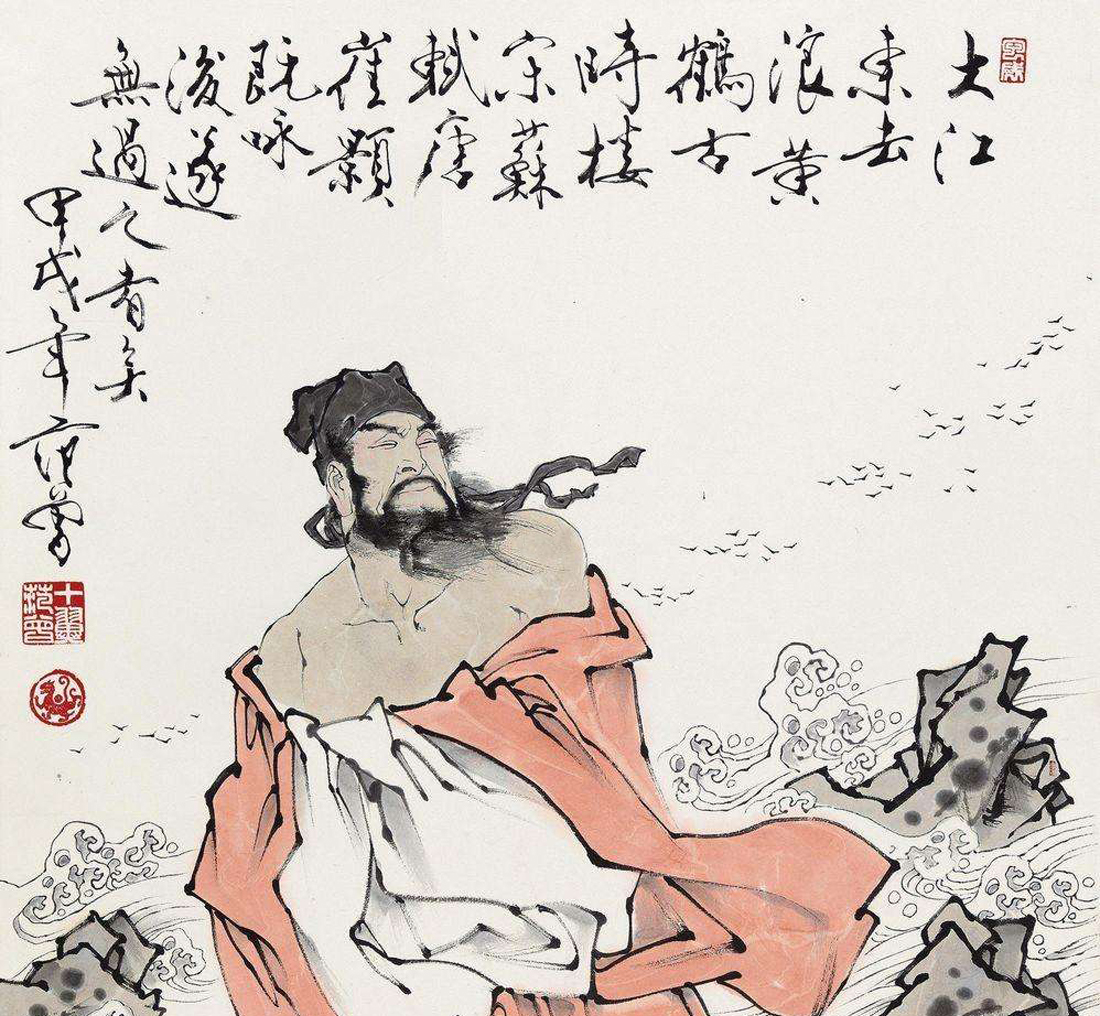 大江
東去
浪黄
鶴古
時楼
宋蘇
軾唐
崔顥
既咏
後遂
無過之者矣
甲戌年范曾
十翼